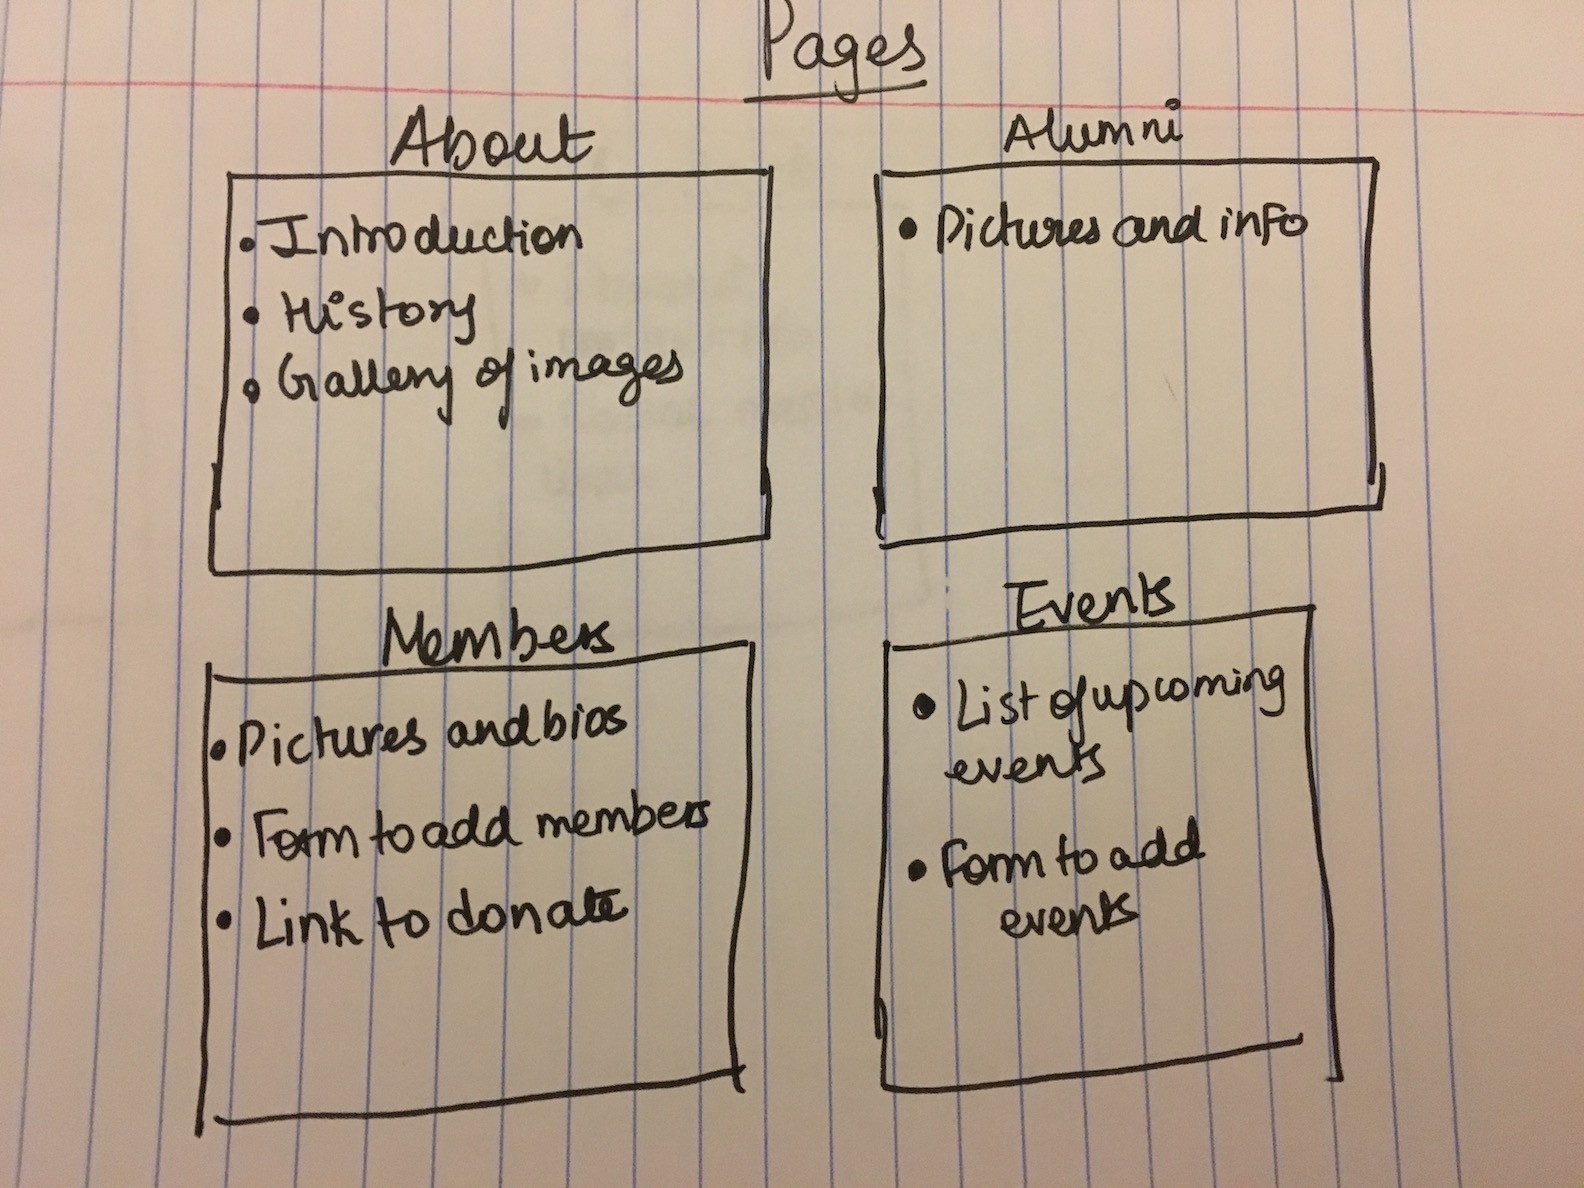 Pages
About
• Introduction
• History
• Gallery of images
Alumni
• Pictures and info
Members
• Pictures and bios
• Form to add members
• Link to donate
Events
• List of upcoming
events
• Form to add
events